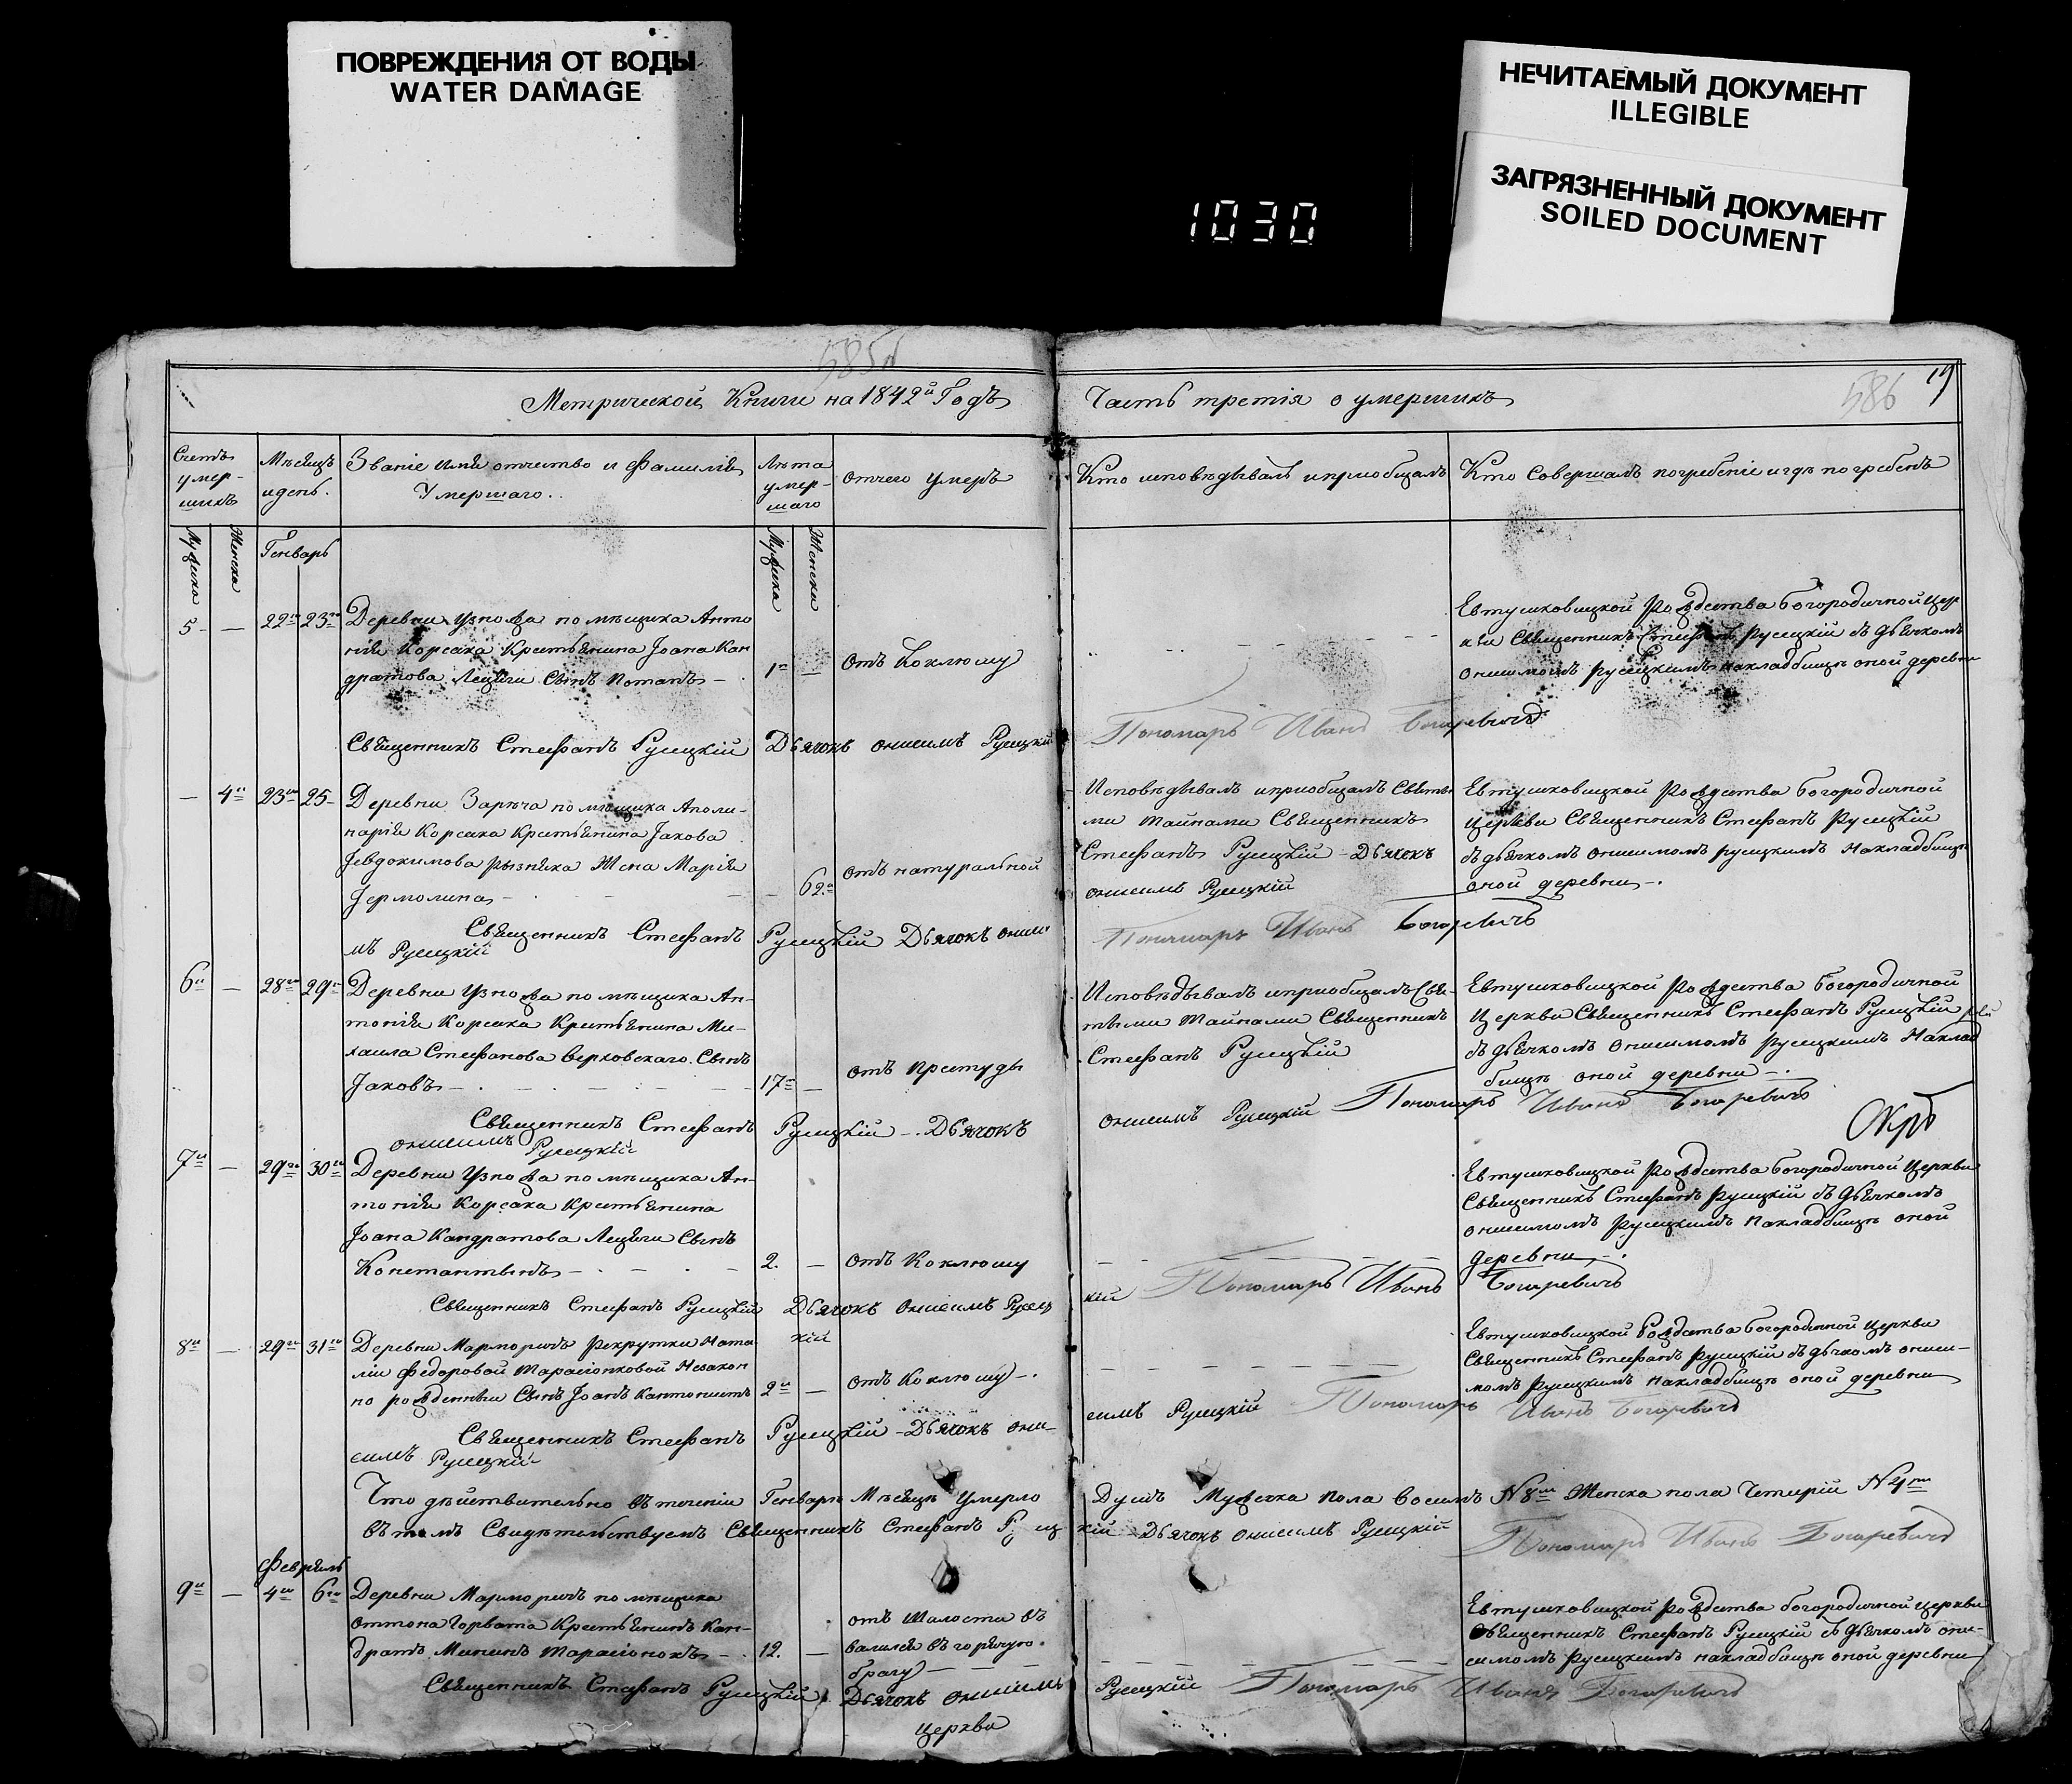 ПОВРЕЖДЕНИЯ ОТ ВОДЫ
WATER DAMAGE
НЕЧИТАЕМЫЙ ДОКУМЕНТ
ILLEGIBLE
ЗАГРЯЗНЕННЫЙ ДОКУМЕНТ
SOILED DOCUMENT
1030
586
19
Метрической Книги на 1842й Годъ
Часть третія о умершихъ
Счетъ умер-шихъ
Мѣсяцъ и день.
Званіе имя отчество и фамилія Умершаго.
Лѣта умер-шаго
отчего умеръ
Кто исповѣдывалъ и пріобщалъ
Кто Совершалъ погребеніе и гдѣ погребенъ
Мужска
Женска
Генварь
Мужска
Женска
5 - — 22 23 Деревни Узножа помѣщика Анто
нія Корсака Крестьянина Іоана Кан
дратова Лецяги Сынъ Потапъ —
1 —
отъ Коклюшу
Евтушковицкой Рождества Богородичной цер
кви Священникъ Стефанъ Русецкій съ дьячкомъ
онисимомъ русецкимъ накладбищѣ оной деревни
Священникъ Стефанъ Русецкій Дьячокъ онисимъ Русецкій
Пономарь Иванъ Богаревичъ
— 4 23 25 Деревни Зарѣча помѣщика Аполи-
нарія Корсака Крестьянина Іакова
Іевдокимова рызника Жена Марія
Іермолина —
— 62
отъ натуральной
Исповѣдывалъ и пріобщалъ Святы-
ми Тайнами Священникъ
Стефанъ Русецкій — Дьячокъ
онисимъ Русецкій
Евтушковицкой Рождества Богородичной
церкви Священникъ Стефанъ Русецкій
съ дьячкомъ онисимомъ русецкимъ Накладбищѣ
оной деревни —.
Священникъ Стефанъ Русецкій Дьячокъ ониси
мъ Русецкій
Пономарь Иванъ Богаревичъ
6 — 28 29 Деревни Узножа помѣщика Ан-
тонія Корсака Крестьянина Ми-
хаила Стефанова Верховскаго. Сынъ
Іаковъ —
17 —
отъ Простуды
Исповѣдывалъ и пріобщалъ Свя-
тыми Тайнами Священникъ
Стефанъ Русецкій
Евтушковицкой Рождества Богородичной
Церкви Священникъ Стефанъ Русецкій
съ дьячкомъ Онисимомъ русецкимъ Наклад
бищѣ оной деревни —.
Священникъ Стефанъ Русецкій —. Дьячокъ
онисимъ Русецкій
онисимъ Русецкій Пономарь Иванъ Богаревичъ
7 — 29 30 Деревни Узножа помѣщика Ан-
тонія Корсака Крестьянина
Іоана Кандратова Лецяги Сынъ
Константынъ —
2. —
отъ Коклюшу
Евтушковицкой Рождества Богородичной Церкви
Священникъ Стефанъ Русецкій съ дьячкомъ
онисимомъ Русецкимъ Накладбищѣ оной
деревни —.
Священникъ Стефанъ Русецкій Дьячокъ Онисимъ Русец
кій
кій Пономарь Иванъ Богаревичъ
8 — 29 31 Деревни Марморичъ Рекрутки Ната
ліи Федоровой Тарасіонковой Незакон
но рожденный Сынъ Іоанъ Кантонистъ
2 —
отъ Коклюшу —.
Евтушковицкой Рождества Богородичной Церкви
Священникъ Стефанъ Русецкій съ дьячкомъ ониси-
момъ Русецкимъ Накладбищѣ оной деревни
Священникъ Стефанъ Русецкій — Дьячок они-
симъ Русецкій
симъ Русецкій Пономарь Иванъ Богаревичъ
Что дѣйствительно въ теченіи Генваря Мѣсяцѣ Умерло Душъ Мужеска пола восимъ №8 Женска пола Четиріи №4
въ томъ Свидѣтельствуемъ Священникъ Стефанъ Русецкій Дьячокъ онисимъ Русецкій
Пономарь Иванъ Богаревичъ
Февраль
9 — 4 6 Деревни Марморичъ помѣщика
оттона Горвата Крестьянинъ Кан-
дратъ Мининъ Тарасіонокъ —.
12. —
отъ Шалости въ
валился въ горячую.
брагу) —
Евтушковицкой Рождества богородичной церкви
Священникъ Стефанъ Русецкій съ дьячкомъ они-
симомъ Русецкимъ накладбищѣ оной деревни
Священникъ Стефанъ Русецкій. Дьячокъ онисимъ
Русецкій Пономарь Иванъ Богаревичъ
церкви